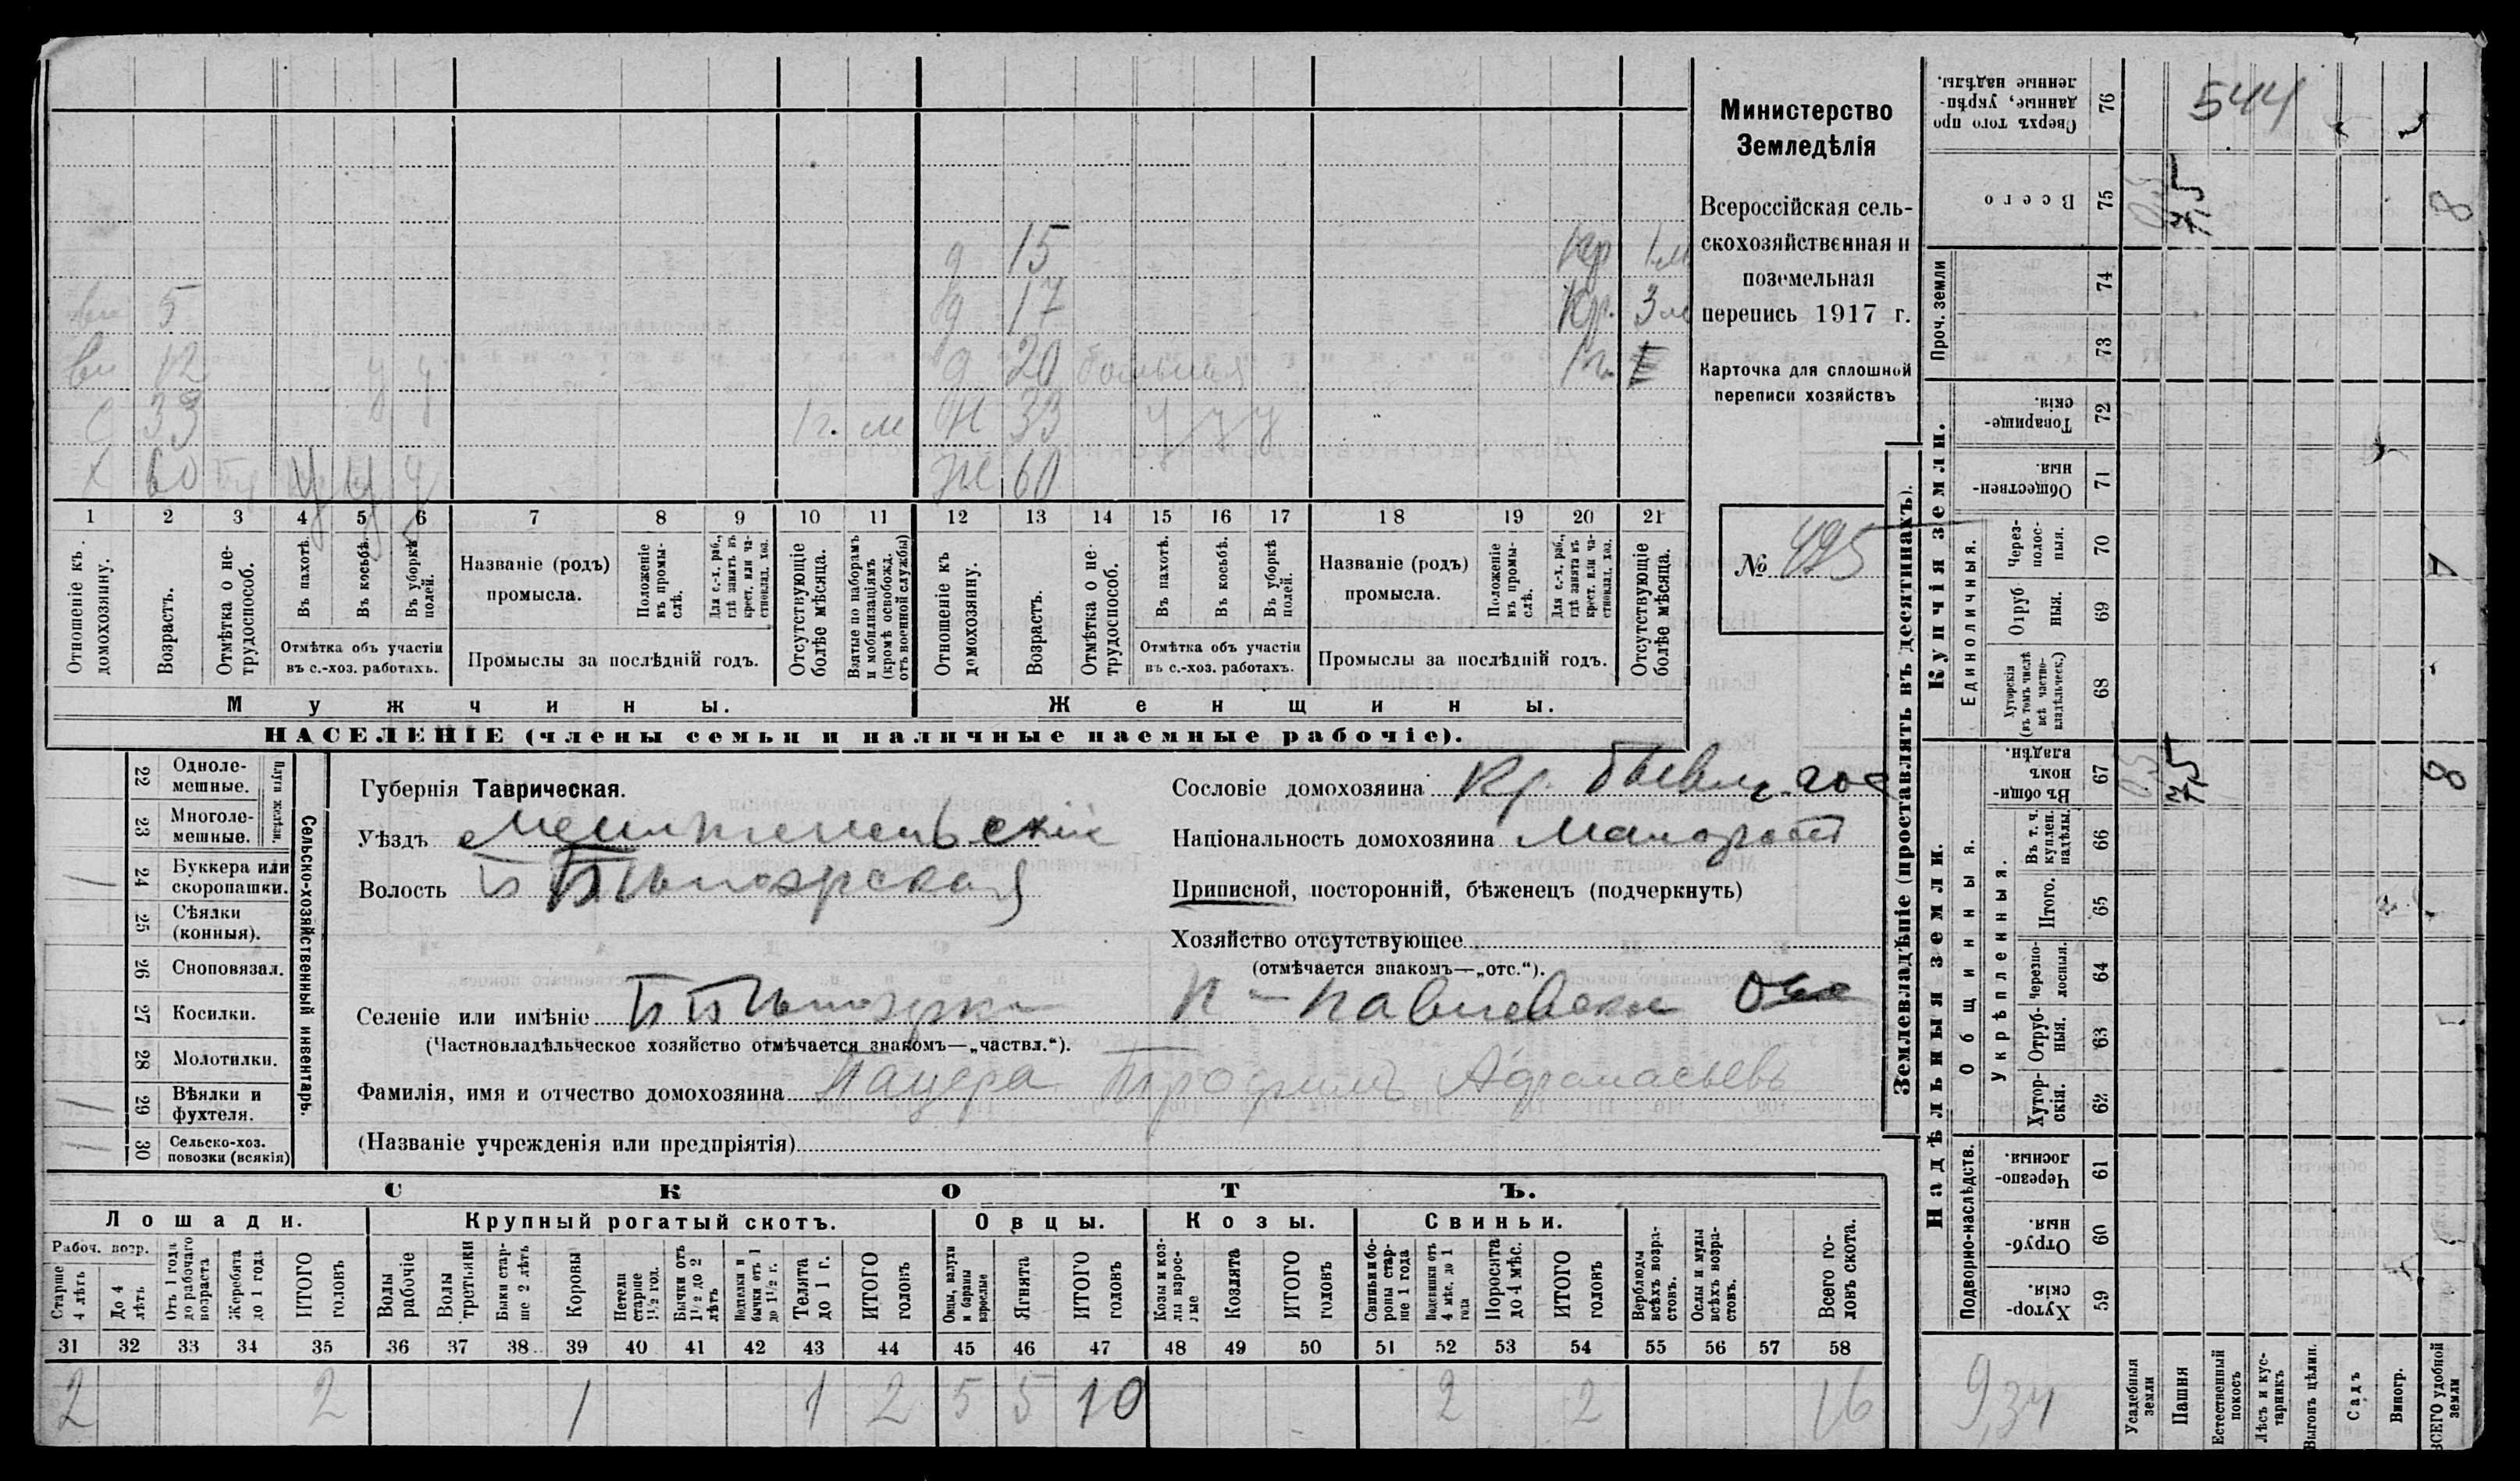 Министерство
Земледѣлія
Всероссійская сель-
скохозяйственная и
поземельная
перепись 1917 г.
Карточка для сплошной
переписи хозяйствъ
№ 495
д 15 Кр 1 м
вн 5 д 17 Кр. 3 м
вн 12 у у д 20 больная
с 33 1 г. м н 33 у у у
х 60 у у у ж 60
1 2 3 4 5 6 7 8 9 10 11 12 13 14 15 16 17 18 19 20 21
Отношеніе къ домохозяину.
Возрастъ.
Отмѣтка о не-трудоспособ.
Въ пахотѣ.
Въ косьбѣ.
Въ уборкѣ полей.
Отмѣтка объ участіи въ с.-хоз. работахъ.
Названіе (родъ) промысла.
Положеніе въ промы-слѣ.
Для с.-х. раб., гдѣ занятъ въ крест. или ча-стновлад. хоз.
Промыслы за послѣдній годъ.
Отсутствующіе болѣе мѣсяца.
Взятые по наборамъ и мобилизаціямъ (кромѣ освобожд. отъ военной службы)
Отношеніе къ домохозяину.
Возрастъ.
Отмѣтка о не-трудоспособ.
Въ пахотѣ.
Въ косьбѣ.
Въ уборкѣ полей.
Отмѣтка объ участіи въ с.-хоз. работахъ.
Названіе (родъ) промысла.
Положеніе въ промы-слѣ.
Для с.-х. раб., гдѣ занята въ крест. или ча-стновлад. хоз.
Промыслы за послѣдній годъ.
Отсутствующіе болѣе мѣсяца.
Мужчины. Женщины.
НАСЕЛЕНІЕ (члены семьи и наличные наемные рабочіе).
Сельско-хозяйственный инвентарь.
Плуги желѣзн.
22 Одноле-мешные.
23 Многоле-мешные.
24 Буккера или скоропашки. 1
25 Сѣялки (конныя).
26 Сноповязал.
27 Косилки.
28 Молотилки.
29 Вѣялки и фухтеля. 1
30 Сельско-хоз. повозки (всякія) 1
Губернія Таврическая.
Уѣздъ Мелитопольскій
Волость
Селеніе или имѣніе
(Частновладѣльческое хозяйство отмѣчается знакомъ—„частвл.“).
Фамилія, имя и отчество домохозяина Пацера Трофимъ Афанасьевъ
(Названіе учрежденія или предпріятія)
Сословіе домохозяина Кр. бывш. гос
Національность домохозяина Малоросъ
Приписной, посторонній, бѣженецъ (подчеркнуть)
Хозяйство отсутствующее
(отмѣчается знакомъ—„отс.“).
СКОТЪ.
Лошади. Крупный рогатый скотъ. Овцы. Козы. Свиньи.
Рабоч. возр.
Старше 4 лѣтъ
До 4 лѣтъ
Отъ 1 года до рабочаго возраста
Жеребята до 1 года
ИТОГО головъ
Волы рабочіе
Волы третьяки
Быки стар-ше 2 лѣтъ
Коровы
Нетели старше 1½ год.
Бычки отъ 1½ до 2 лѣтъ
Подтелки и бычки отъ 1 до 1½ г.
Телята до 1 г.
ИТОГО головъ
Овцы, валухи и бараны взрослые
Ягнята
ИТОГО головъ
Козы и коз-лы взрос-лые
Козлята
ИТОГО головъ
Свиньи и бо-ровы стар-ше 1 года
Подсвинки отъ 4 мѣс. до 1 года
Поросята до 4 мѣс.
ИТОГО головъ
Верблюды всѣхъ возра-стовъ.
Ослы и мулы всѣхъ возра-стовъ.
Всего го-ловъ скота.
31 32 33 34 35 36 37 38 39 40 41 42 43 44 45 46 47 48 49 50 51 52 53 54 55 56 57 58
2 2 1 1 2 5 5 10 2 2 16
Землевладѣніе (проставлять въ десятинахъ).
Купчія земли.
Надѣльныя земли.
Сверхъ того про данные, укрѣп-ленные надѣлы. 76 544
Всего 75 7,5 8
Проч. земли
74
73
Товарище-скія. 72
Обществен-ныя. 71
Единоличныя.
Через-полос-ныя. 70
Отруб ныя. 69
Хуторскія (въ томъ числѣ всѣ частно-владѣльческ.) 68
Общинныя.
Въ общи-номъ владѣн. 67 7,5 8
Укрѣпленныя.
Въ т. ч. куплен. надѣлы. 66
Итого. 65
Черезпо-лосныя. 64
Отруб-ныя. 63
Хутор-скія. 62
Подворно-наслѣдств.
Черезпо-лосныя. 61
Отруб-ныя. 60
Хутор-скія. 59
9,34
Усадебныя земли
Пашня
Естественный покосъ
Лѣсъ и кус-тарникъ
Выгонъ цѣлин.
Садъ
Виногр.
ВСЕГО удобной земли